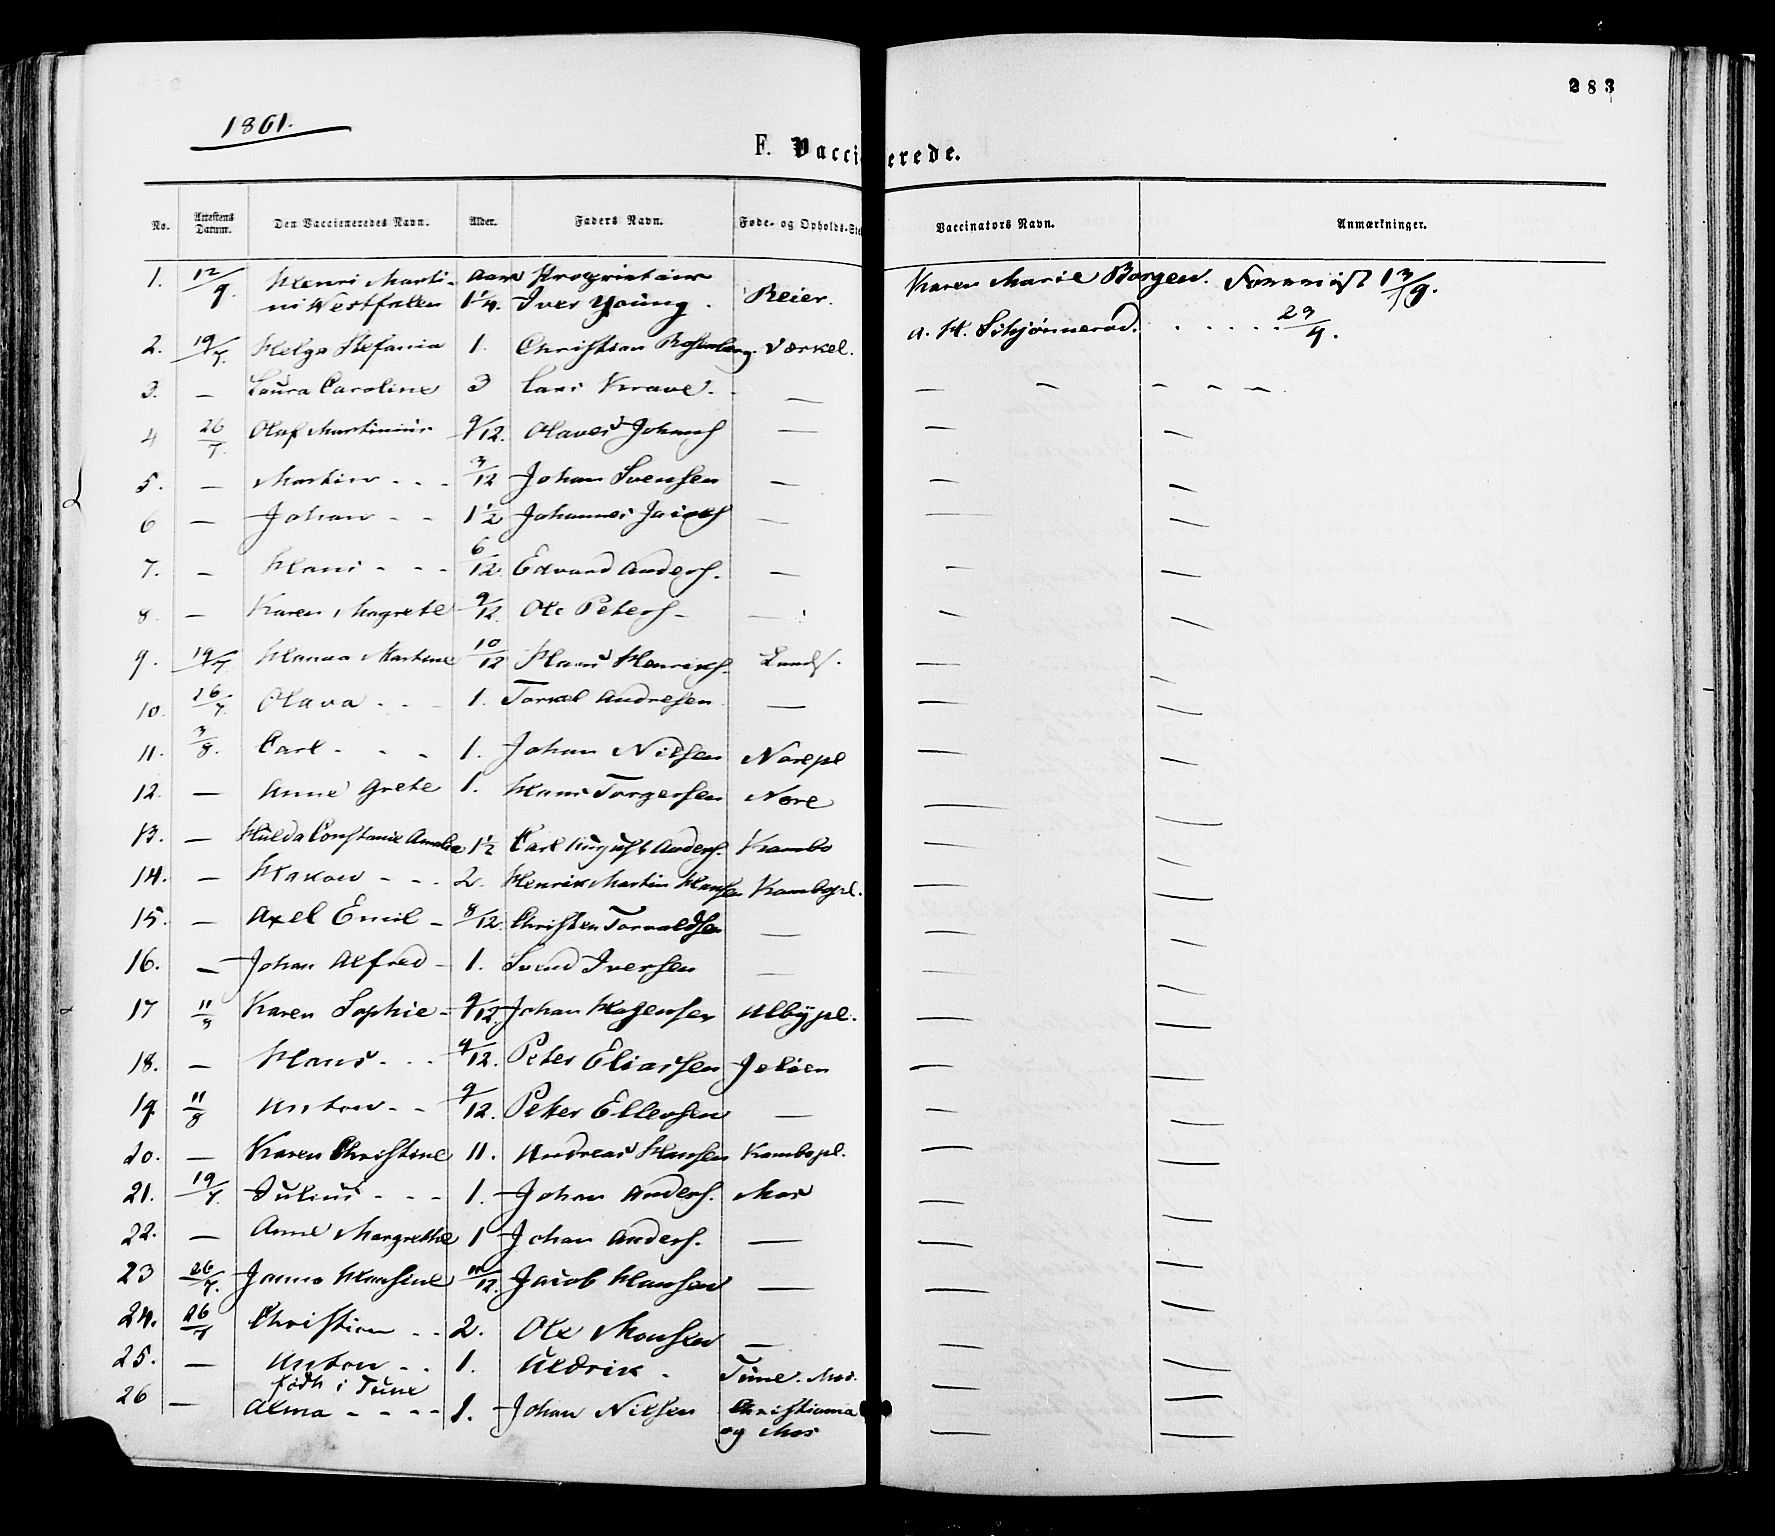 283
1861.
F. Vaccinerede.
No. Attestens Datum. Den Vaccineredes Navn. Alder. Faders Navn. Føde- og Opholds-Sted Vaccinators Navn. Anmærkninger.
1. 12/9. Henri Marti- Aar Proprietær Karen Marie Borgen. 13/9.
ni Westfalen 1 1/4. Iver Young. Reier.
2. 19/7. Helga Stefania 1. Christian Rosenberg. Værkel. A. H. Schjønnerød. . . . . . 23/9.
3. — Laura Caroline 3 Lars Krave. — — — — — —
4 26/7. Olaf Martinius 9/12. Olaves Johans — — —
5. — Martin - - - 3/12 Johan Svensen — — —
6 — Johan - - 1 1/2 Johannes Jacobs — — —
7. — Hans - - - 6/12. Edvard Anders. — — —
8. — Karen Magrete 9/12. Ole Peters — — — —
9. 19/7. Hanna Martine 10/12 Hans Henriks. Lands. — —
10. 26/7. Olava - - - 1. Torkel Andresen — — —
11. 3/8. Carl - - - 1. Johan Nilsen Norepl — —
12. — Anne Grete 1. Hans Torgersen Nore — —
13. — Hulda Constanse Amalia 1 1/2 Carl August Anders. Kambo — —
14. — Hakon - - - 2. Henrik Martin Hansen Kambopl. — —
15. — Axel Emil - 8/12. Christen Torvaldsen — — —
16. — Johan Alfred - 1. Svend Iversen — — —
17 11/8 Karen Sophie - 9/12. Johan Mogensen Albypl. — —
18. — Hans - - - 9/12. Peter Eliassen Jeløen — —
19. 11/8 Anton - - 9/12. Peter Ellevsen — — —
20. — Karen Christine 11. Andreas Hansen Kambopl. — —
21. 19/7. Julius - - - 1. Johan Anders. Mos — —
22. — Anne Margrethe 1 Johan Anders. — — —
23 26/7. Janna Hansine 11/12. Jacob Hansen — — —
24. 26/7 Christian - - 2. Ole Monsen — — —
25. — Anton - - 1. Uldrik. Tune. Mos. — —
født i Tune
26 — Alma - - - - 1. Johan Nilsen Christiania — —
og Mos